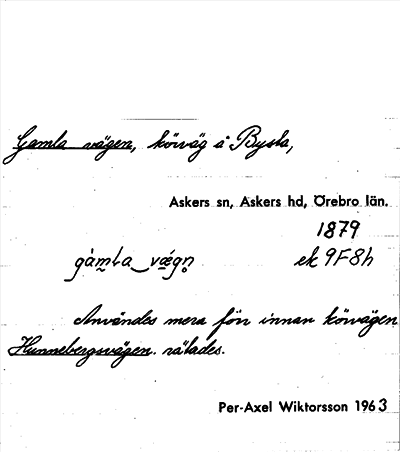 Gamla vägen, körväg å Bysta,
Askers sn, Askers hd, Örebro län.
1879
gàmla vǽgn̥ ek 9F8h
Användes mera förr innan körvägen
Hunnebergsvägen rätades.
Per-Axel Wiktorsson 1963